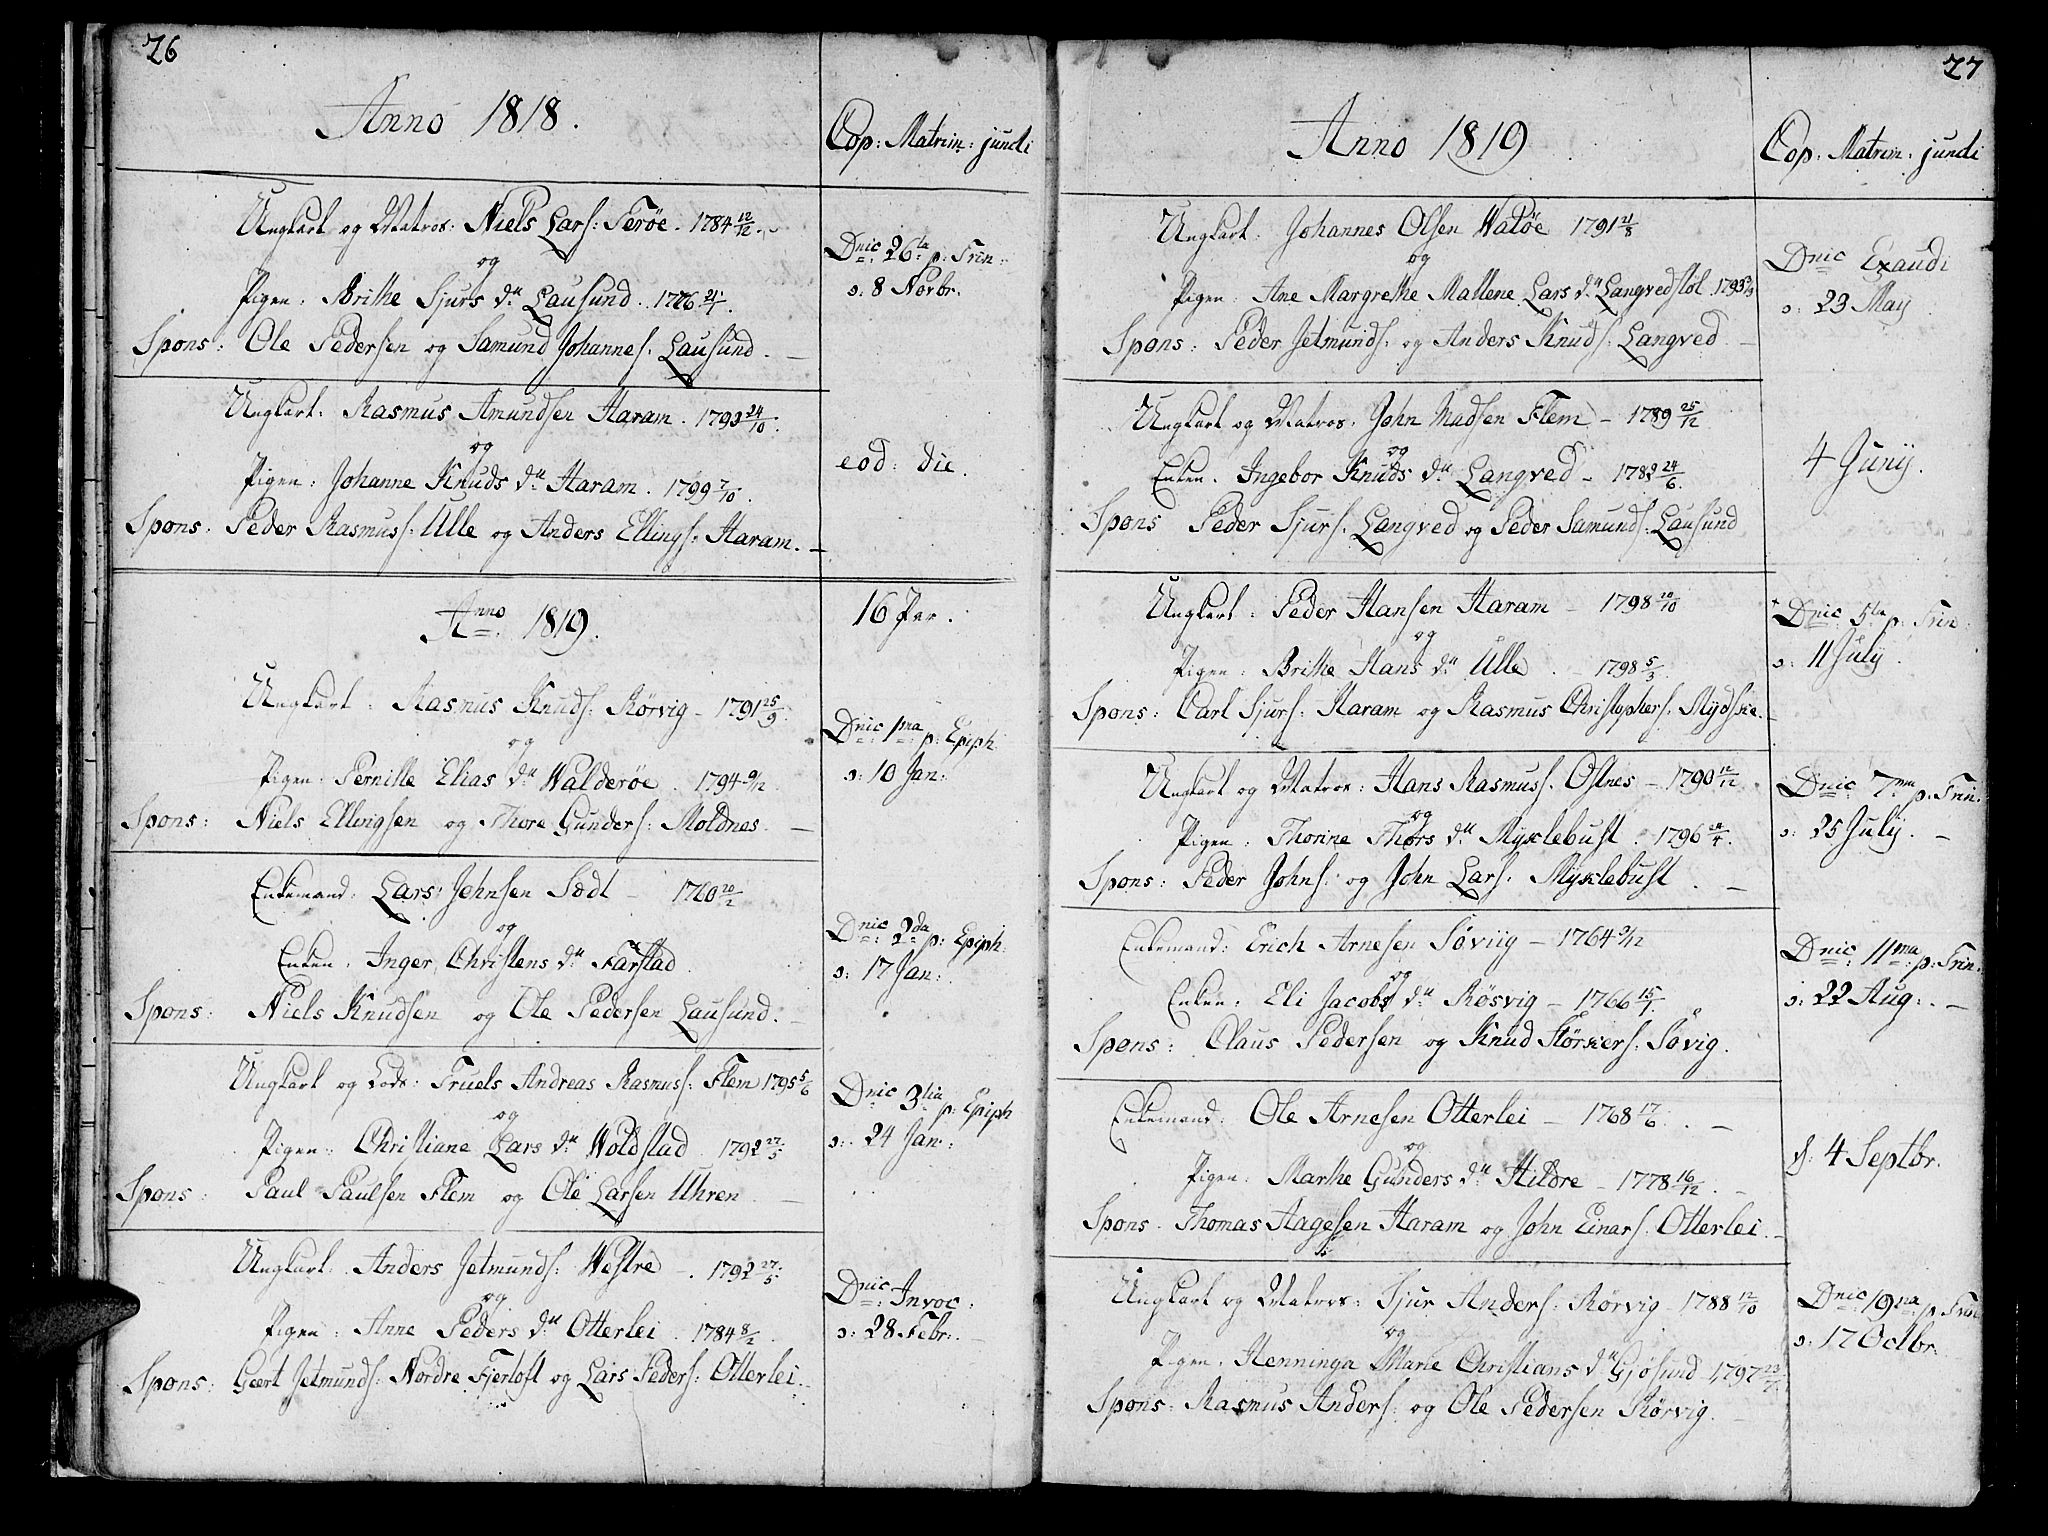 26
Anno 1818.
Cop: Matrim: juncti
Ungkarl og Matros: Niels Lars: Ferøe. 1784 12/12.
og
Pigen: Brithe Sjurs dtr Lausund. 1776 21/1.
Spons: Ole Pedersen og Samund Johannes. Lausund. —
Dnic 26ta p: Trin:
o: 8 Novbr.
Ungkarl. Rasmus Amundsen Haram. 1793 24/10.
og
Pigen: Johanne Knuds dtr Haram. 1799 7/10.
Spons: Peder Rasmuss: Ulle og Anders Ellings: Haram. —
eod: die.
Anno 1819.
16 Par.
Ungkarl: Rasmus Knuds: Rørvig - 1791 25/9.
og
Pigen: Pernille Elias dtr Walderøe. 1794 9/12
Spons: Niels Ellingsen og Thore Gunders: Moldnes. —
Dnic 1ma p: Epiph
o: 10 Jan:
Enkemand: Lars Johnsen Sødt - 1760 20/2
og
Enken. Inger Christens dtr Farstad.
Spons: Niels Knudsen og Ole Pedersen Lausund. —
Dnic: 2da p: Epiph:
o: 17 Jan:
Ungkarl og Lods: Truels Andreas Rasmuss: Flem 1795 5/6
og
Pigen: Christiane Lars dtr Woldstad. 1792 27/5
Spons: Paul Paulsen Flem og Ole Larsen Uhren. —
Dnic 3tia p: Epiph
o: 24 Jan:
Ungkarl. Anders Jetmunds: Westre -. 1792 27/5.
og
Pigen: Anne Peders dtr Otterlei. 1784 8/2.
Spons: Geert Jetmunds: Nordre Fjertoft og Lars Peders: Otterlei.
Dnic: Invoc:
o: 28 Febr:
27
Anno 1819
Cop: Matrim: juncti
Ungkarl. Johannes Olsen Watøe 1791 21/8
og
Pigen: Ane Margrethe Mallene Lars dtr Langvedstøl 1793
Spons: Peder Jetmunds. og Anders Knuds: Langved. —
Dnic Exaudi
o: 23 May
Ungkarl og Matros. John Madsen Flem - 1789 25/12
og
Enken. Ingebor Knuds dtr Langved - 1782 24/6.
Spons Peder Sjurs. Langved og Peder Samunds: Lausund
4 Junij.
Ungkarl: Peder Hansen Haram - 1798 20/10
og
Pigen: Brithe Hans dtr Ulle. - 1798 5/3.
Spons: Carl Sjurs: Haram og Rasmus Christophers. Mydskie. —
Dnic 5ta p: Trin:
o: 11 July.
Ungkarl og Matros: Hans Rasmuss. Ostnes - 1790 12/12
og
Pigen: Thorine Thors dtr Myklebust. 1796 21/4.
Spons: Peder Johns: og John Lars. Myklebust. —
Dnic 7ma p: Trin:
o: 25 July. —
Enkemand: Erich Arnesen Søviig - 1764 9/12
og
Enken: Eli Jacobs dtr Røsvig - 1766 15/1.
Spons: Claus Pedersen og Knud Størkers: Søvig.
Dnic 11ma p: Trin:
o: 22 Aug:. —
Enkemand: Ole Arnesen Otterlei - 1768 17/6. —
og
Pigen: Marthe Gunders dtr Hildre - 1778 16/12. —
Spons. Thomas Aagesen Haram og John Einars: Otterlei. —
d. 4 Septbr.
Ungkarl og Matros: Sjur Anders: Rørvig - 1788 12/10
og
Pigen. Henninga Marie Christians dtr Gjøsund 1797 23/7.
Spons: Rasmus Anders: og Ole Pedersen Rørvig. —
Dnic 19na p. Trin
o: 17 Octbr.